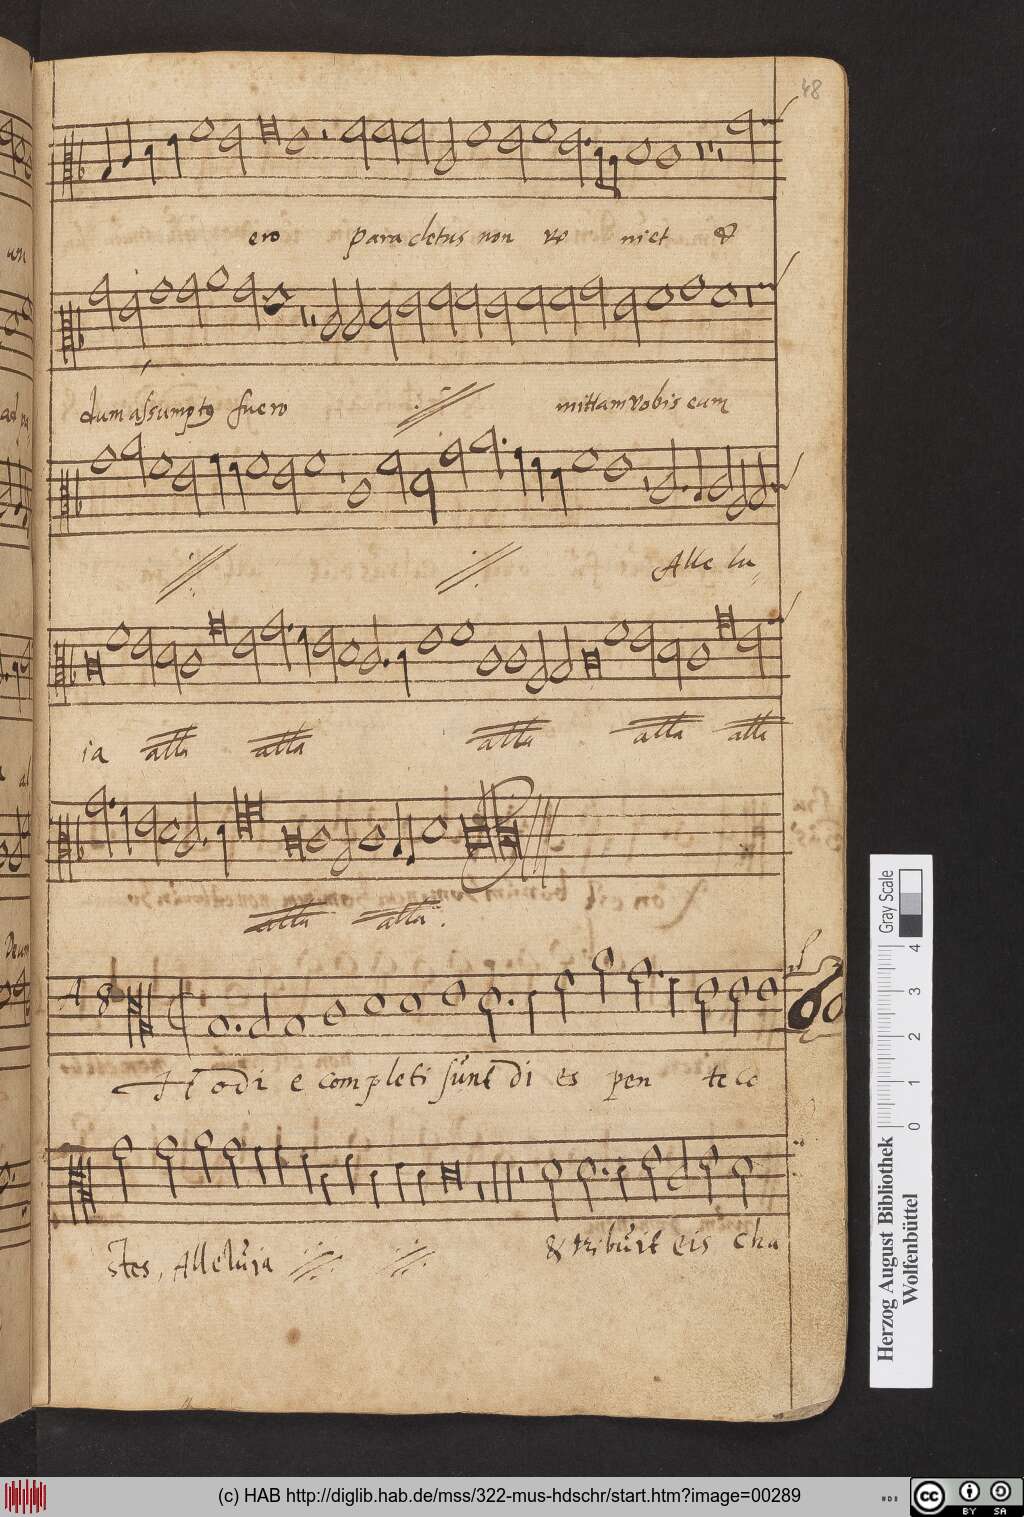 48
ero paracletus non ve niet &
dum assumptꝰ fuero mittam vobis eum
Alle lu,
ia alla alla alla alla alla
alla alla.
A 8
Hodi e completi sunt di es pen teco
stes, Alleluia & tribuit eis cha
Gray Scale
0 1 2 3 4
Herzog August Bibliothek
Wolfenbüttel
(c) HAB http://diglib.hab.de/mss/322-mus-hdschr/start.htm?image=00289
cc BY SA